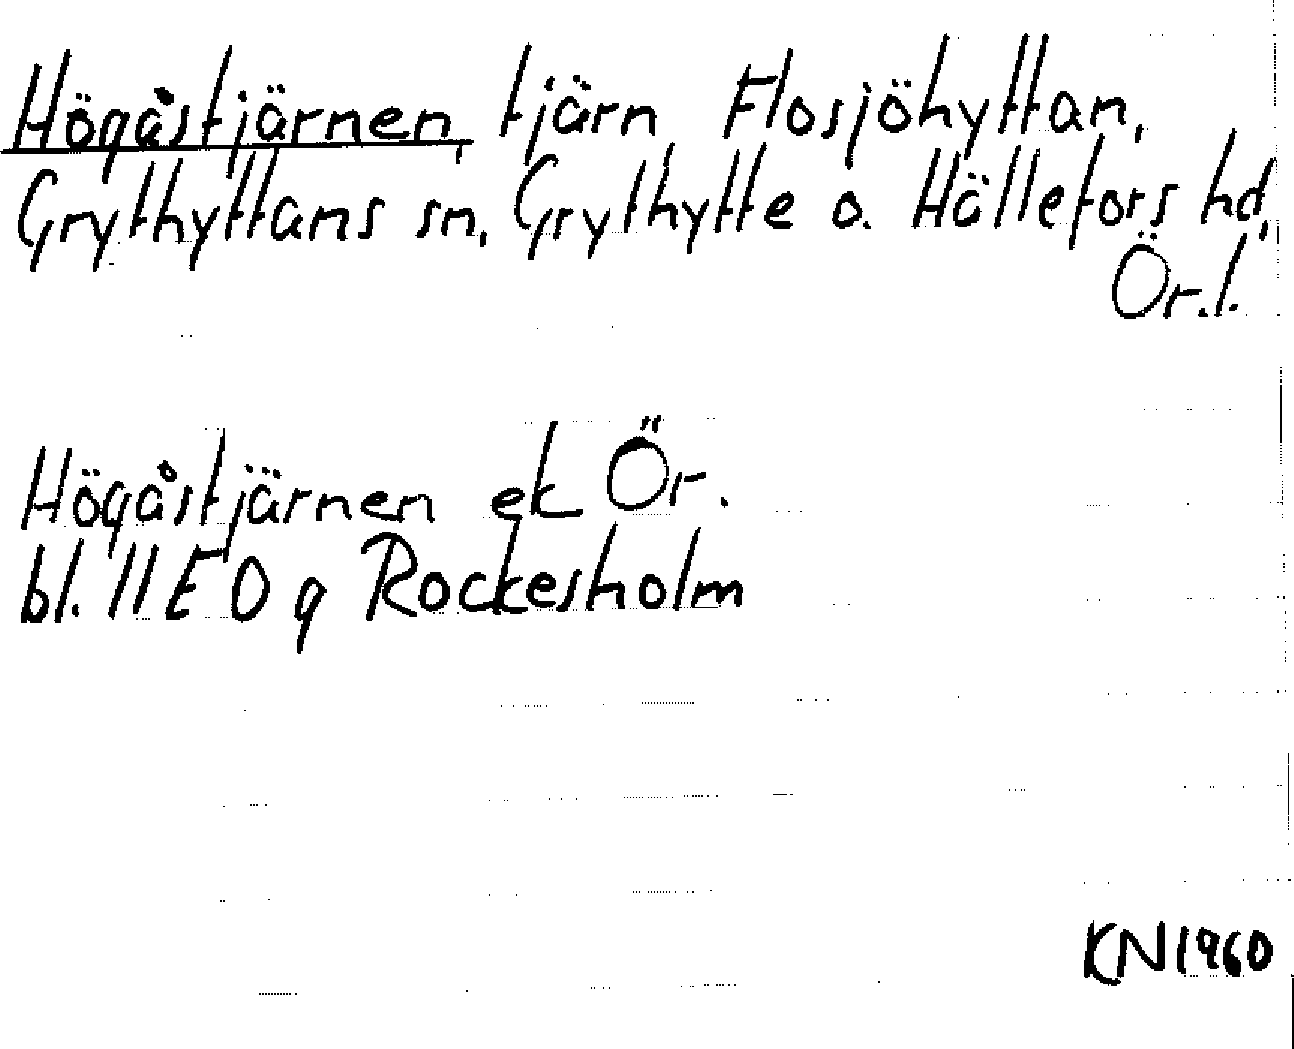 Högåstjärnen, tjärn, Flosjöhyttan,
Grythyttans sn, Grythytte o. Hällefors hd,
Ör.l.
Högåstjärnen ek Ör.
bl. 11 E 0 g Rockesholm
KN 1960